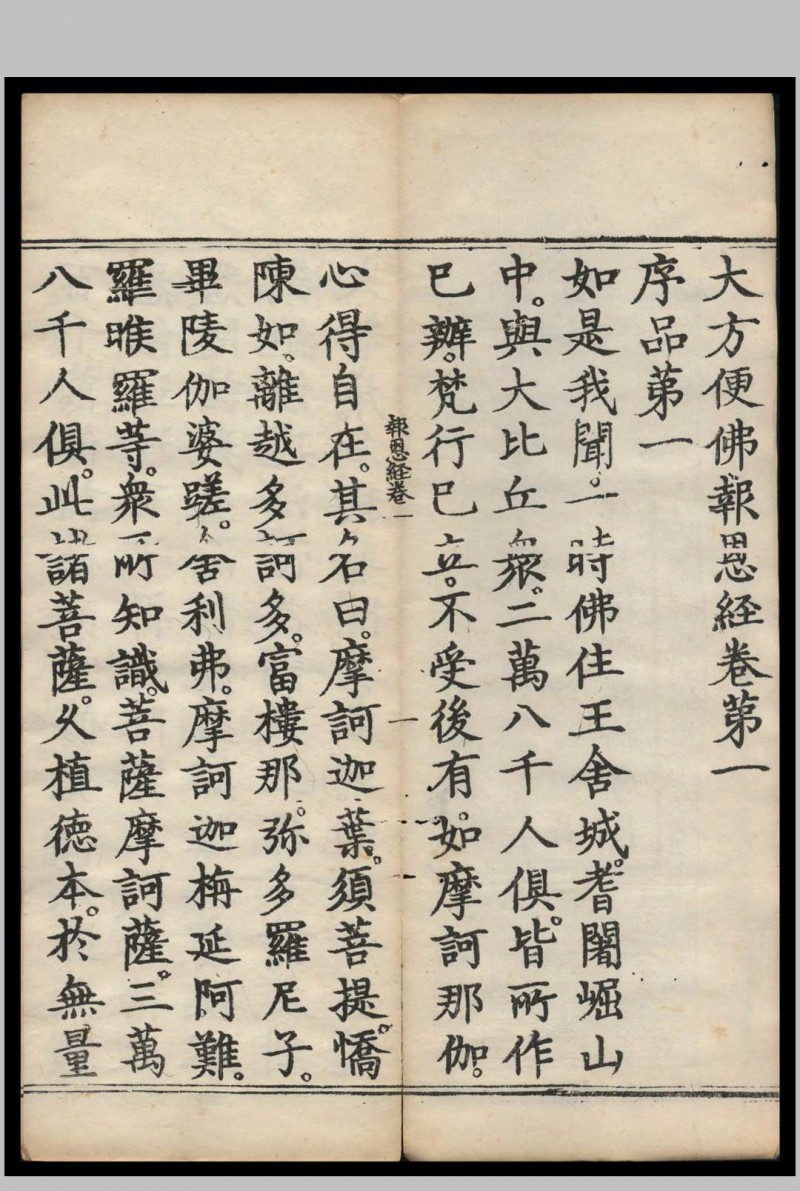 大方便佛報恩経卷第一
序品第一
如是我聞。一時佛住王舍城。耆闍崛山
中。與大比丘衆。二萬八千人俱。皆所作
已辦。梵行已立。不受後有。如摩訶那伽。
報恩経卷一
一
心得自在。其名曰。摩訶迦葉。須菩提。憍
陳如。離越多訶多。富樓那。弥多羅尼子。
畢陵伽婆蹉。舍利弗。摩訶迦栴延阿難。
羅睺羅等。衆所知識。菩薩摩訶薩。三萬
八千人俱。此諸菩薩。久植德本。於無量